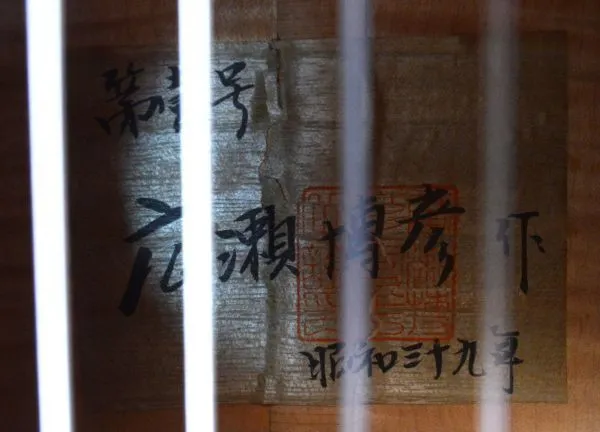 第壱号
広瀬博彦作
昭和三十九年